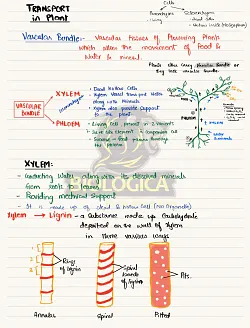 TRANSPORT
in Plant
Cells
Parenchyma
Sclerenchyma
- living
- dead cells
Vascular Bundle:- Vascular tissues of Flowering Plants
which allow the movement of Food &
Water & mineral.
Plants also carry vascular bundle
VASCULAR
BUNDLE
XYLEM
- Dead Hollow Cells
- Xylem Vessel transport Water
along with Minerals
- Xylem also provide support
to the plant
PHLOEM
- Living cells present in 2 variants
- Sieve tube element & companion cell
- Sucrose
the phloem
XYLEM:
- Conducting Water along with its dissolved minerals
from roots to leaves
- Providing mechanical support
- It is made up of dead & hollow cell (No organelle)
BIOLOGICA
Xylem → Lignin - a Substance made up Carbohydrate
deposited on the wall of Xylem
in three various ways
Rings
of lignin
Spiral
bands
of lignin
Pits.
Annular
Spiral
Pitted